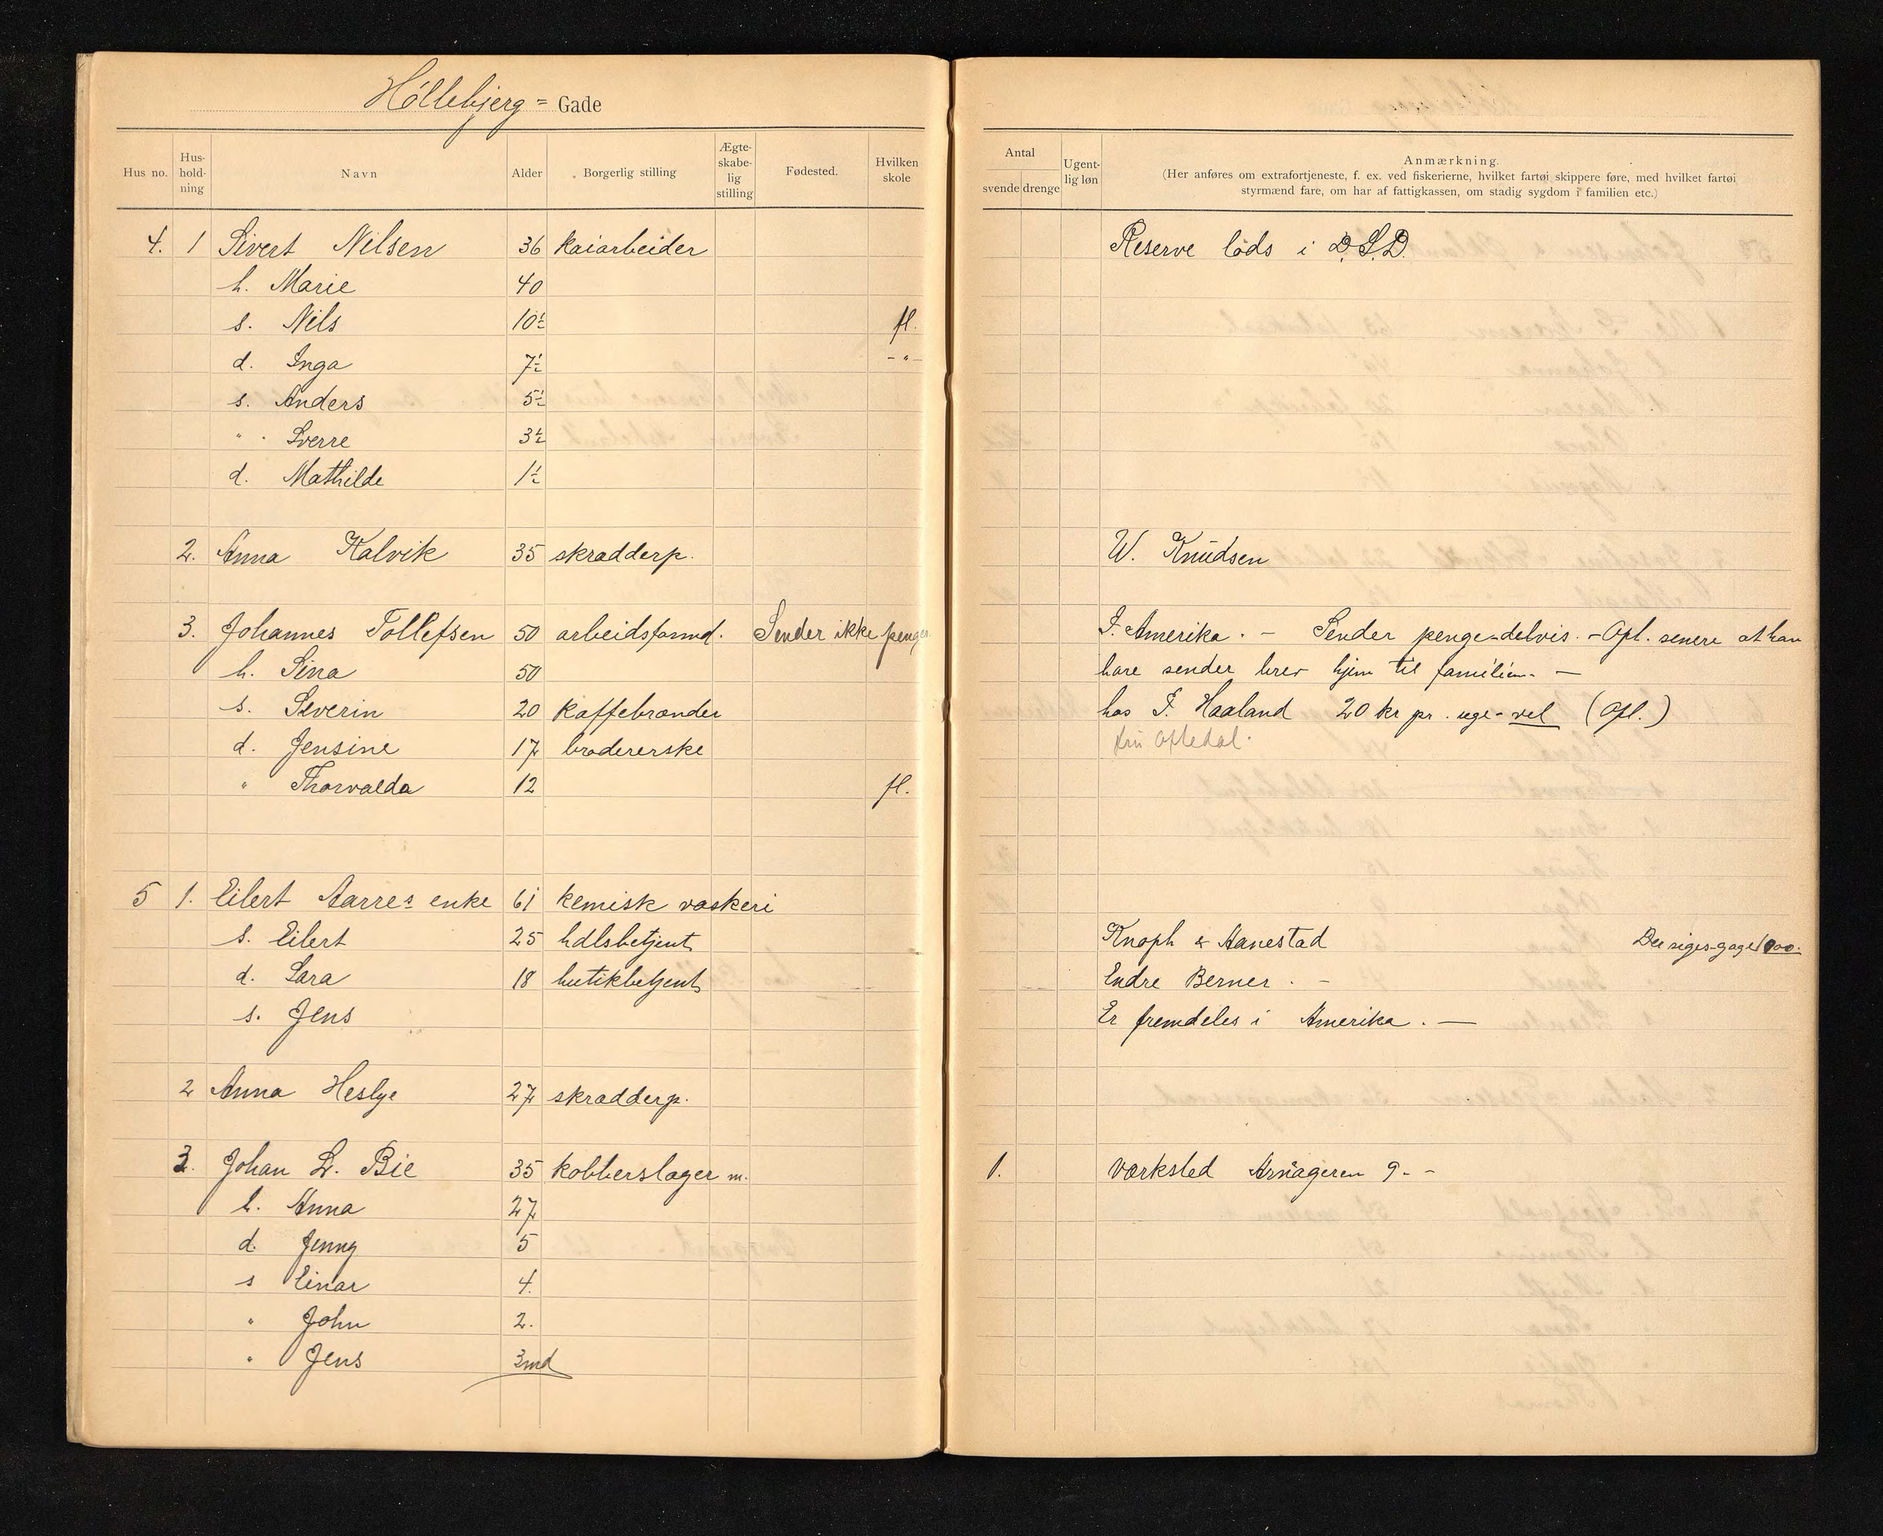 Høllebjerg = Gade
Hus no. Hus-hold-ning Navn Alder Borgerlig stilling Ægte-skabe-lig stilling Fødested. Hvilken skole
Antal svende drenge Ugent-lig løn Anmærkning.
(Her anføres om extrafortjeneste, f. ex. ved fiskerierne, hvilket fartøi skippere føre, med hvilket fartøi
styrmænd fare, om har af fattigkassen, om stadig sygdom i familien etc.)
4. 1 Sivert Nilsen 36 kaiarbeider Reserve lods i D.S.D.
h. Marie 40
s. Nils 10½ fl.
d. Inga 7½ - " -
s. Anders 5½
" Sverre 3½
d. Mathilde 1½
2. Anna Kalvik 35 skrædderp. W. Knudsen
3. Johannes Tollefsen 50 arbeidsformd. Sender ikke penger I. Amerika. - Sender penge - delvis. - Opl. senere at han
h. Sina 50 bare sender brev hjem til familien. -
s. Severin 20 kaffebrænder hos I. Haaland 20 kr pr. uge - vel (Opl.)
d. Jensine 17 brodererske Aftedal.
" Thorvalda 12 fl.
5 1. Eilert Aarres enke 61 kemisk vaskeri
s. Eilert 25 hdlsbetjent Knoph & Aanestad Der siges - gage 1000.
d. Sara 18 butikbetjent Endre Berner. -
s. Jens Er fremdeles i Amerika. -
2 Anna Heslye 27 skrædderp.
3. Johan L. Bie 35 kobberslager m. 1. Værksted Arnageren 9. -
h. Anna 27
d. Jenny 5
s Einar 4.
" John 2.
" Jens 3md